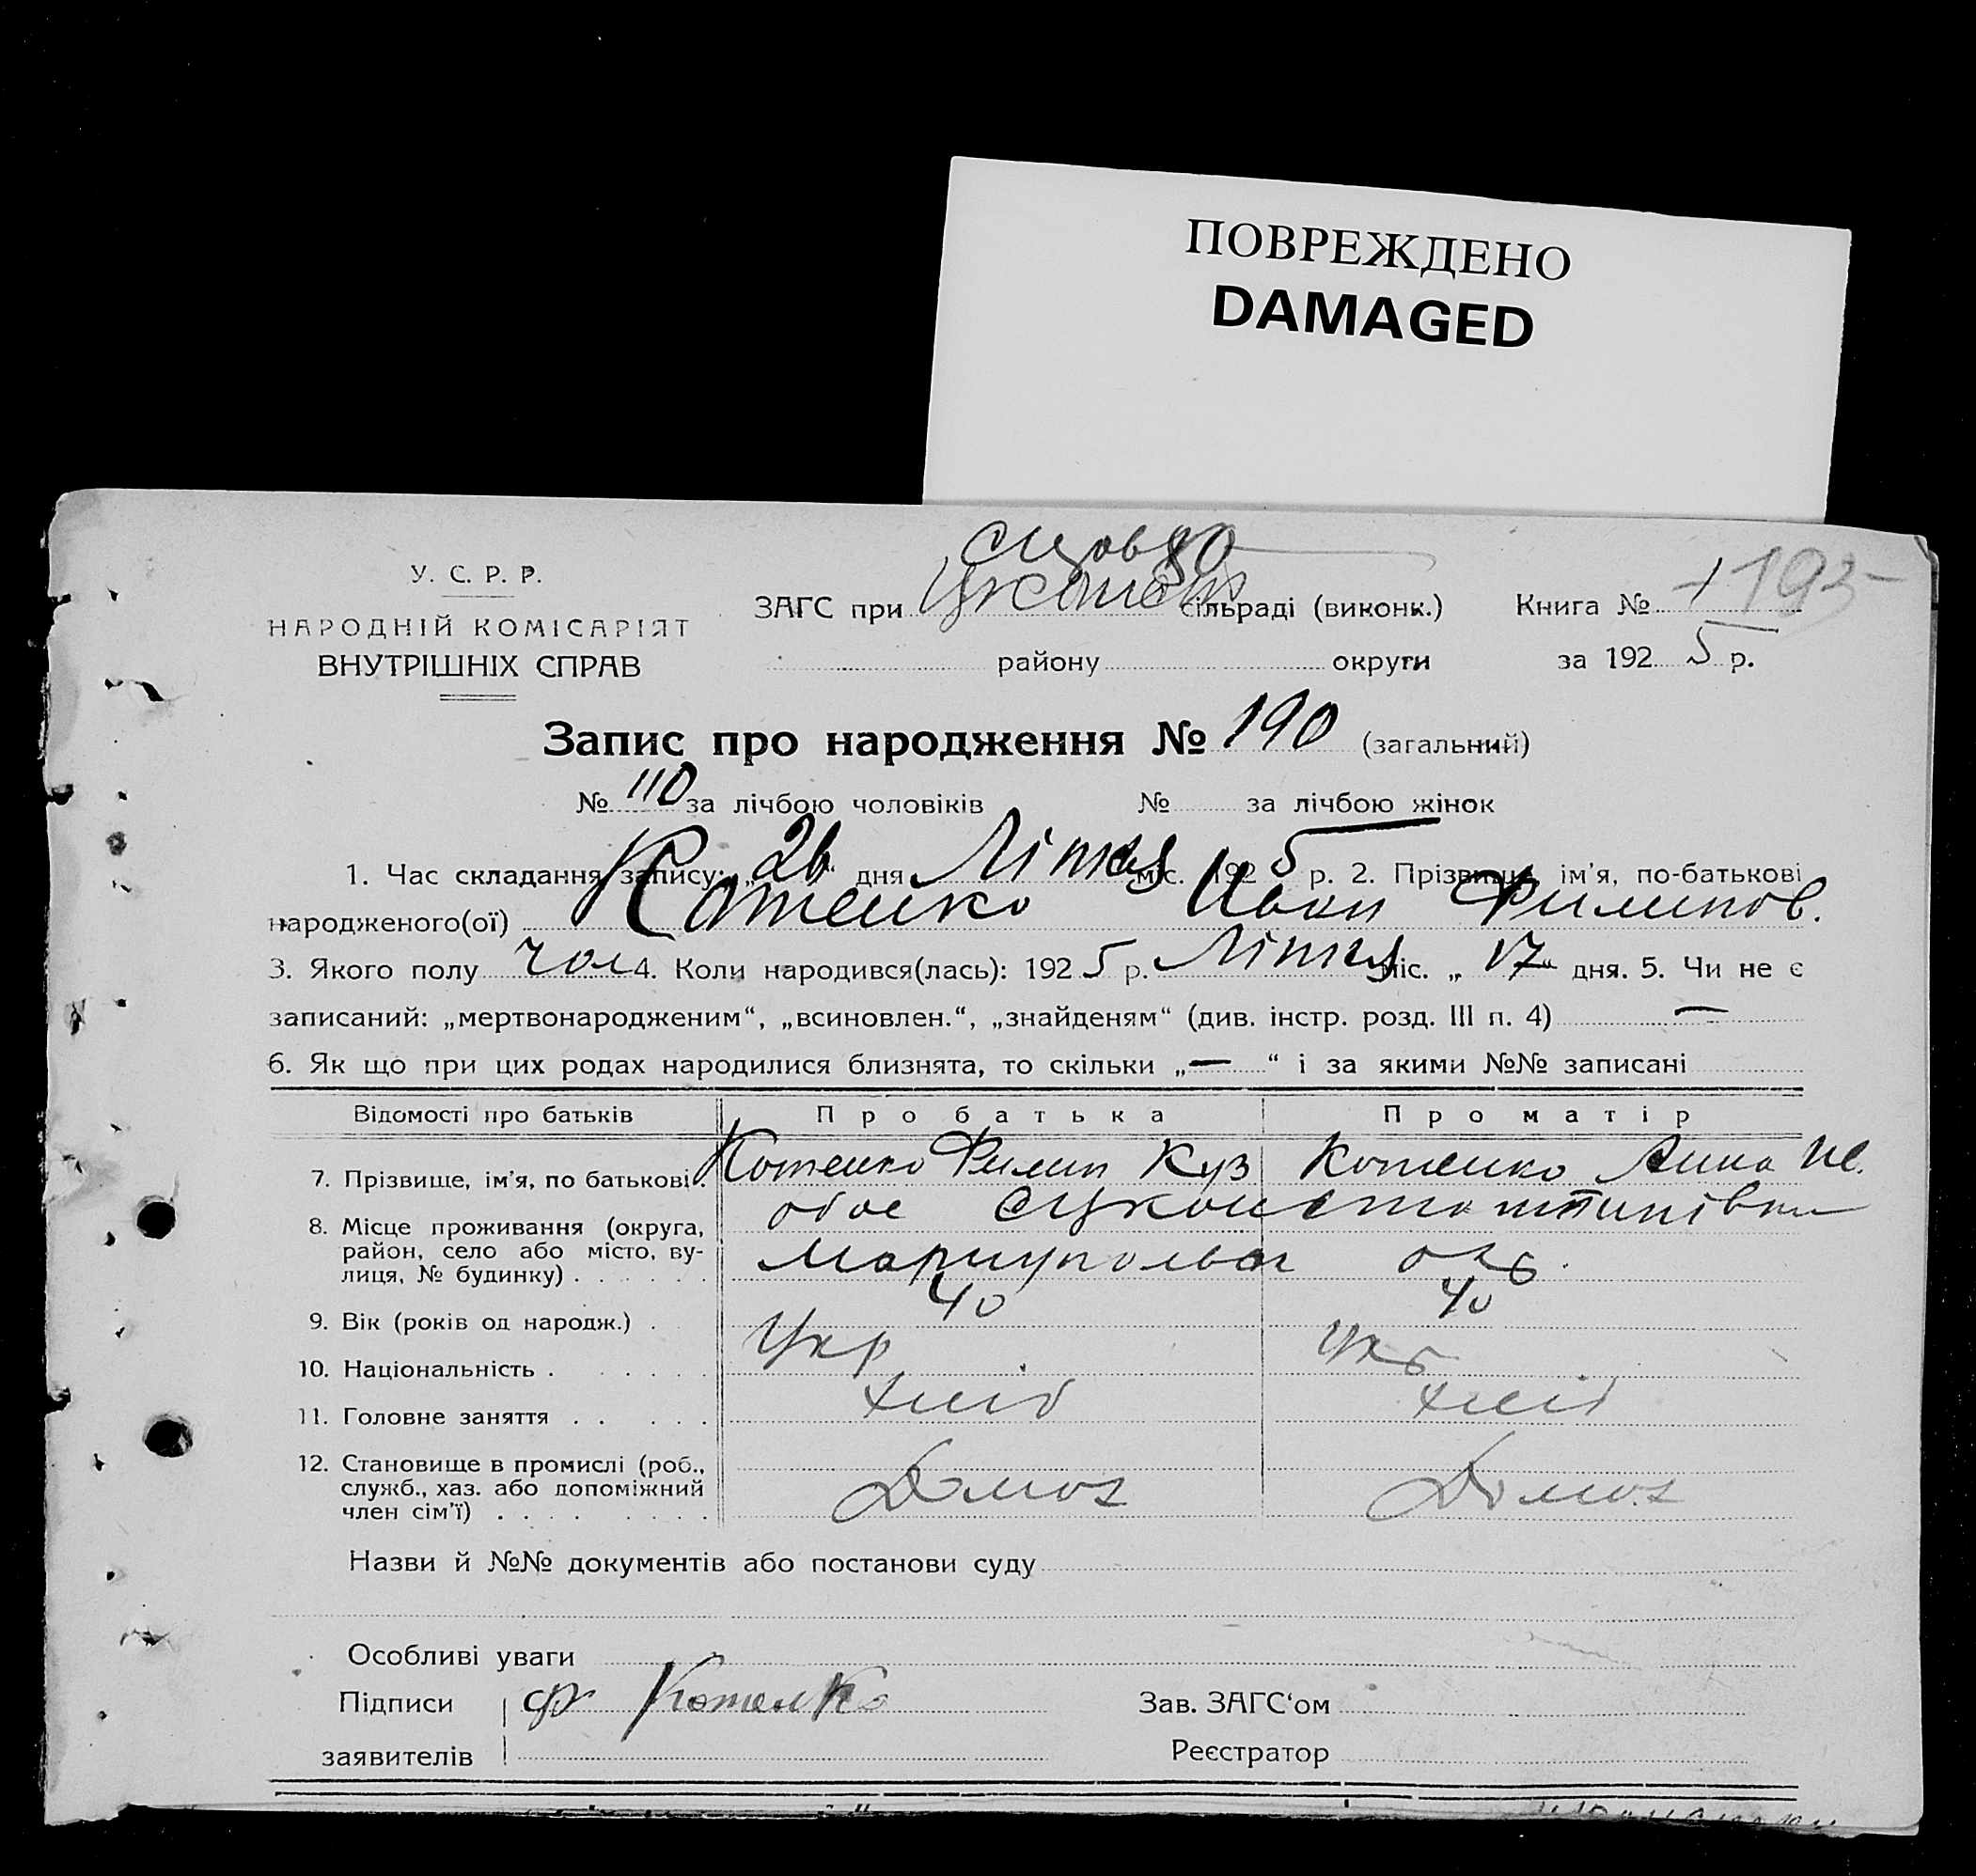 ПОВРЕЖДЕНО
DAMAGED
У. С. Р. Р.
НАРОДНІЙ КОМІСАРІЯТ
ВНУТРІШНІХ СПРАВ
ЗАГС при сільраді (виконк.)
району округи
Книга № 1 193
за 1925 р.
Запис про народження № 190 (загальний)
№ 110 за лічбою чоловіків № за лічбою жінок
1. Час складання запису: „26“ дня міс. 1925 р. 2. Прізвище, ім'я, по-батькові
народженого(ої) Котенко Иван Филипов.
3. Якого полу чол 4. Коли народився(лась): 1925 р. міс. „17“ дня. 5. Чи не є
записаний: „мертвонародженим“, „всиновлен.“, „знайденям“ (див. інстр. розд. III п. 4) —
6. Як що при цих родах народилися близнята, то скільки „—“ і за якими №№ записані
Відомості про батьків Про батька Про матір
7. Прізвище, ім'я, по батькові. Котенко Филип Куз Котенко Анна
8. Місце проживання (округа, район, село або місто, вулиця, № будинку) обое
9. Вік (років од народж.) 40 40
10. Національність Укр Укр
11. Головне заняття хліб хліб
12. Становище в промислі (роб., служб., хаз. або допоміжний член сім'ї) Домох Домох
Назви й №№ документів або постанови суду
Особливі уваги
Підписи Ф Котенко Зав. ЗАГС'ом
заявителів Реєстратор